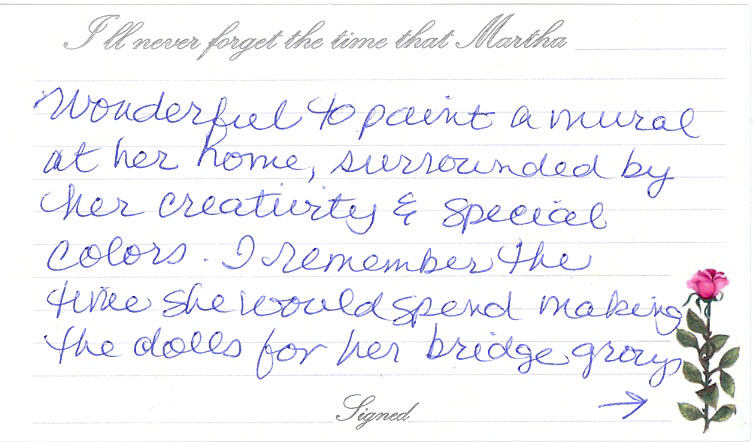 I'll never forget the time that Martha
Wonderful to paint a mural
at her home, surrounded by
her creativity & special
colors. I remember the
time she would spend making
the dolls for her bridge group
Signed